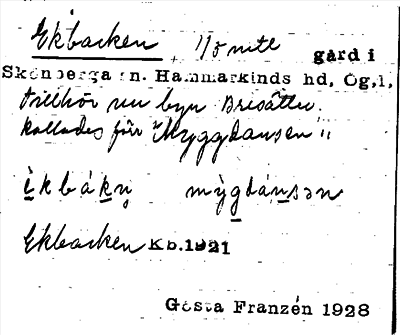 Ekbacken 1/8 mtl gård i
Skönberga sn. Hammarkinds hd, Ög.l.
tillhör nu byn Brisätter.
kallades för "Myggdansen"
ìkbákn̥ mỳgdánsən
Ekbacken Kb.1921
Gösta Franzén 1928